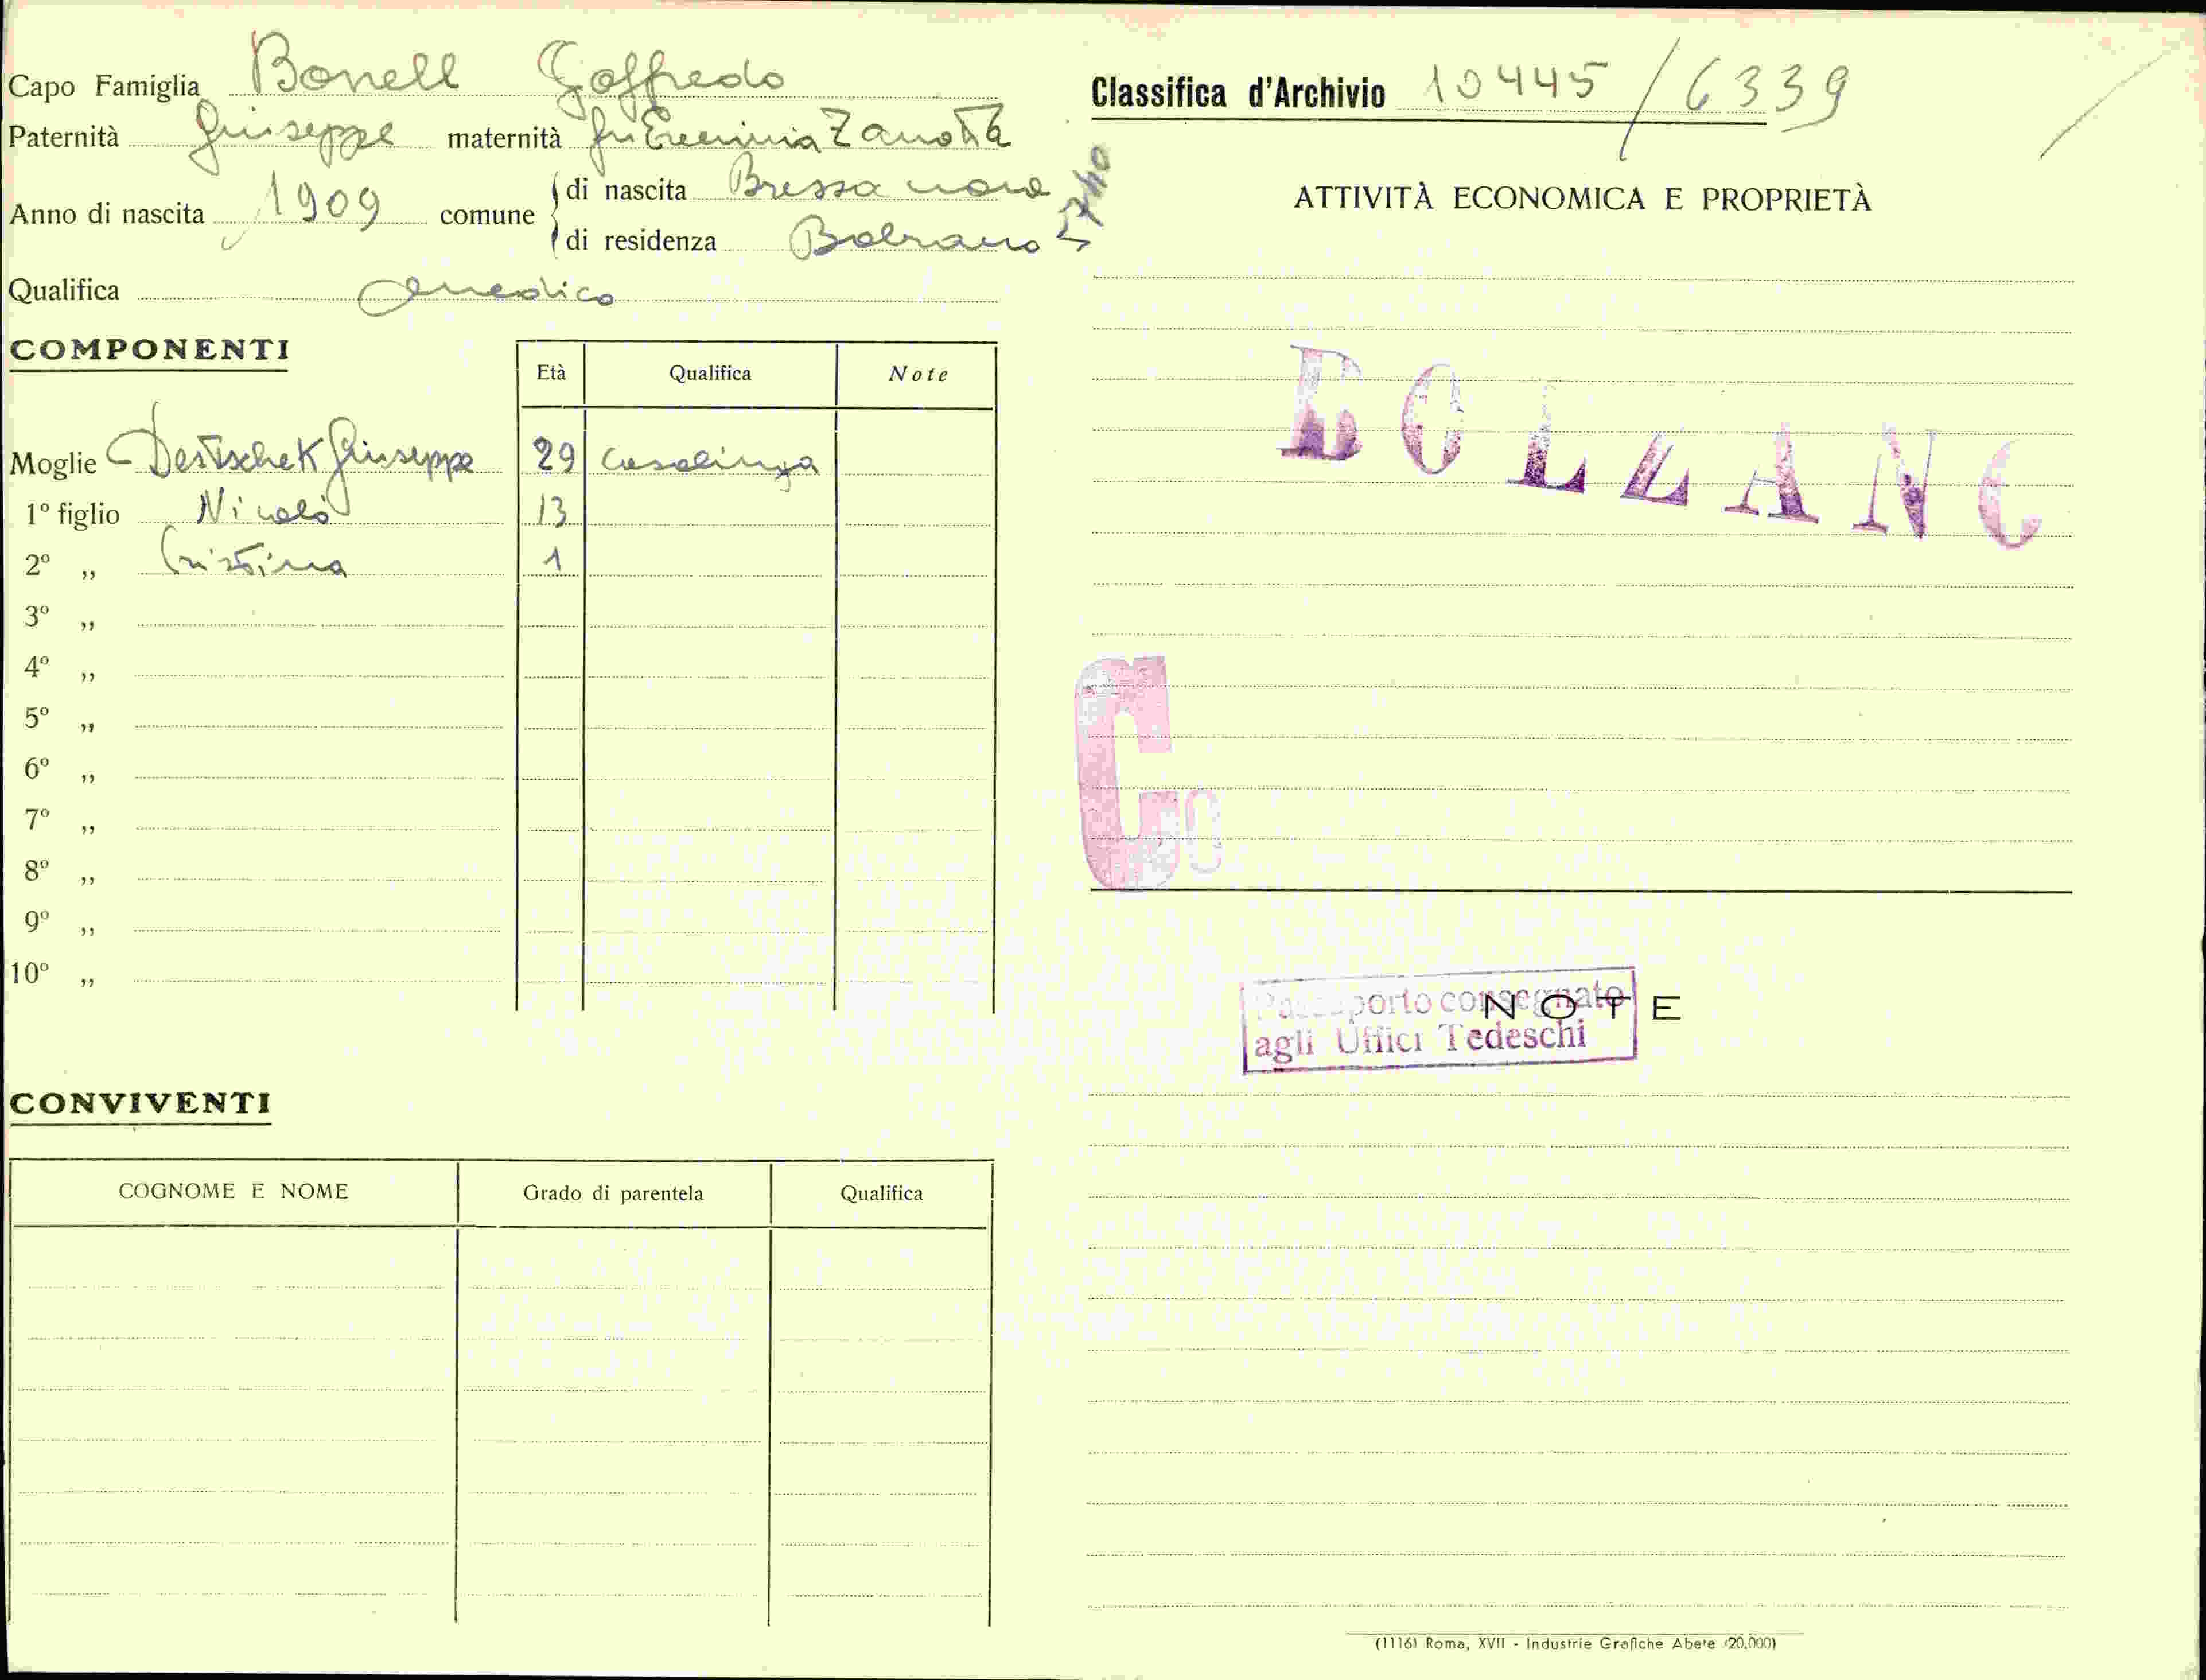 Capo Famiglia Bonell Goffredo
Paternità Giuseppe maternità fu Erminia Zanotti
Anno di nascita 1909 comune
di nascita Bressanone
di residenza Bolzano
Qualifica medico
COMPONENTI
Età Qualifica Note
Moglie Destschek Giuseppe 29 casalinga
1º figlio Nicolò 13
2º „ Cristina 1
3º „
4º „
5º „
6º „
7º „
8º „
9º „
10º „
CONVIVENTI
COGNOME E NOME Grado di parentela Qualifica
Classifica d'Archivio 10445/6339
ATTIVITÀ ECONOMICA E PROPRIETÀ
BOLZANO
C
NOTE
Passaporto consegnato
agli Uffici Tedeschi
(1116) Roma, XVII - Industrie Grafiche Abete (20.000)